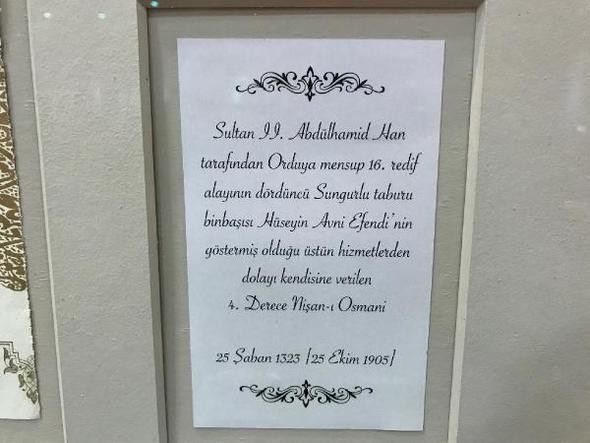 Sultan II. Abdülhamid Han
tarafından Orduya mensup 16. redif
alayının dördüncü Sungurlu taburu
binbaşısı Hüseyin Avni Efendi'nin
göstermiş olduğu üstün hizmetlerden
dolayı kendisine verilen
4. Derece Nişan-ı Osmani
25 Şaban 1323 [25 Ekim 1905]